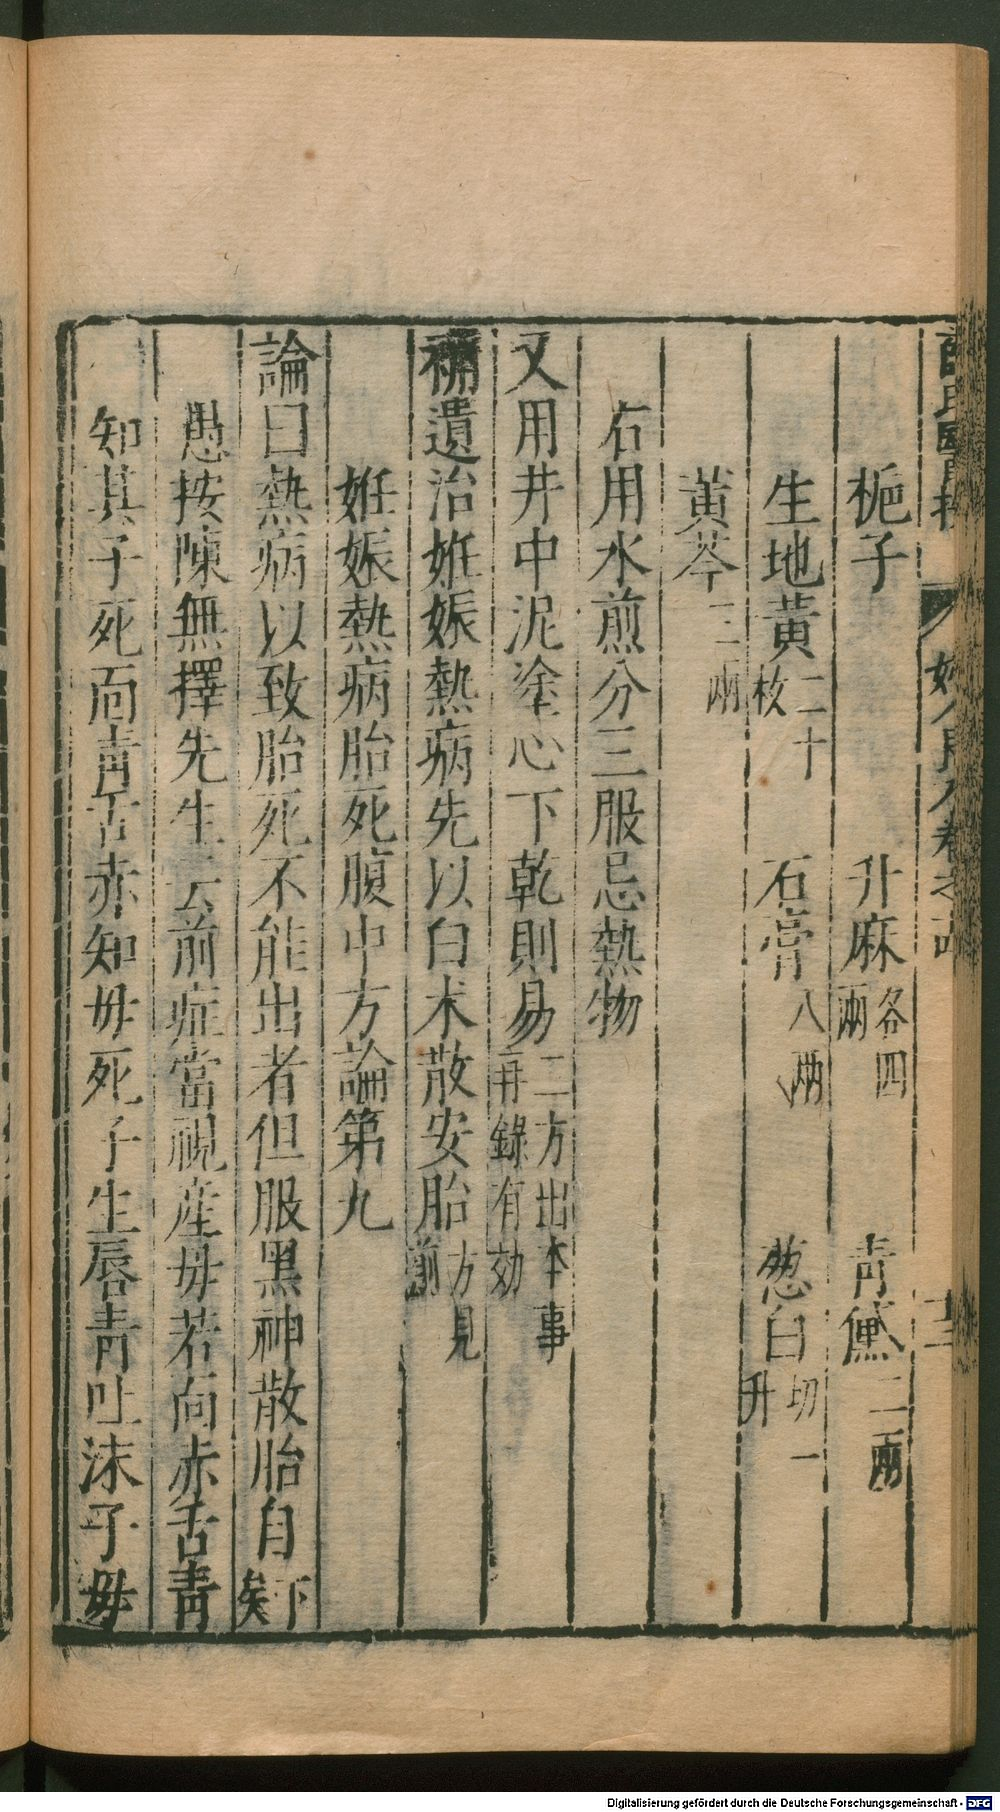 婦人良方卷之十四　十二
梔子　升麻各四兩　青黛二兩
生地黃二十枚　石膏八兩　葱白切一升
黃芩三兩
右用水煎分三服忌熱物
又用井中泥塗心下乾則易二方出本事再錄有効
補遺治姙娠熱病先以白朮散安胎方見前
姙娠熱病胎死腹中方論第九
論曰熱病以致胎死不能出者但服黑神散胎自下矣
愚按陳無擇先生云前症當視産母若面赤舌青
知其子死面青舌赤知母死子生唇青吐沫子母
Digitalisierung gefördert durch die Deutsche Forschungsgemeinschaft - DFG